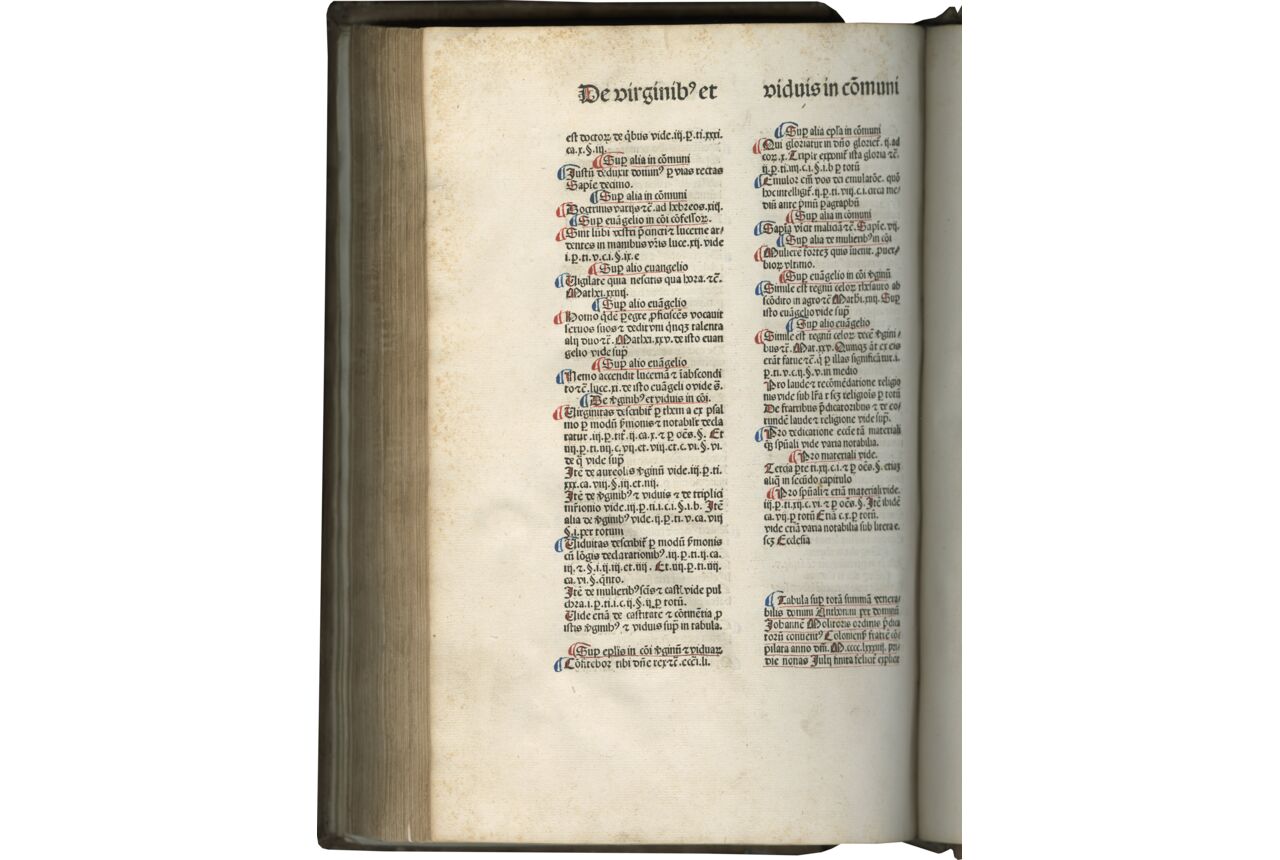 De virginib⁹ et viduis in cōmuni
est doctoꝝ de q̄bus vide .iij. p̲. ti. xxxi.
ca. x. §. iij.
Sup alia in cōmuni
Justū deduxit domin⁹ p̲ vias rectas
Sapīe decimo.
Sup alia in cōmuni
Doctrinis varijs ⁊c̄. ad hebreos. xiij.
Sup euāgelio in cōi cōfessoꝝ.
Sint lūbi vestri p̄cincti ⁊ lucerne ar⸗
dentes in manibus vr̄is luce. xij. vide
i. p̲. ti. v. c. i. §. ix. e
Sup alio euangelio
Vigilate quia nescitis qua hora. ⁊c̄.
Mathei. xxiiij.
Sup alio euāgelio
Homo q̄dē p̲egre ꝓficiscēs vocauit
seruos suos ⁊ dedit vni qnqꝫ talenta
alij duo ⁊c̄. Mathei. xxv. de isto euan
gelio vide sup̄
Sup alio euāgelio
Nemo accendit lucernā ⁊ ī abscondi
to ⁊c̄. luce. xi. de isto euāgelio vide s̄.
De v̄ginib⁹ et viduis in cōi.
Virginitas describit̄ p̲ thema ex psal
mo p̲ modū p̄monis ⁊ notabilr̄ decla
ratur .iij. p̲. tit̄. ij. ca. x. ⁊ p̲ oēs. §. Et
iiij. p̲. ti. iiij. c. vij. et. viij. et. c. vi. §. vi.
de q̄ vide sup̄
Itē de aureolis v̄ginū vide. iij. p̲. ti.
xxx. ca. viij. §. iij. et. iiij.
Itē de v̄ginib⁹ ⁊ viduis ⁊ de triplici
mr̄imonio vide. iij. p̲. ti. i. c. i. §. i. b. Itē
alia de v̄ginib⁹ vide. ij. p̲. ti. v. ca. viij
§. i. per totum
Viduitas describit̄ p̲ modū p̄monis
cū lōgis declarationib⁹. iij. p̲. ti. ij. ca.
iij. ⁊. §. i. ij. iij. et. iiij. Et. iiij. p̲. ti. iiij.
ca. vi. §. q̄nto.
Itē de mulierib⁹ scīs ⁊ cast̄. vide pul
chra. i. p̲. ti. i. c. ij. §. ij. p̲ totū.
Vide etiā de castitate ⁊ cōtinētia ꝓ
istis v̄ginib⁹ ⁊ viduis sup̄ in tabula.
Sup ep̄lis in cōi v̄ginū ⁊ viduaꝝ
Cōfitebor tibi dn̄e rex ⁊c̄. eccl̄i. li.
Sup alia ep̄la in cōmuni
Qui gloriatur in dn̄o gloriet̄. ij. ad
coꝝ. x. Triplr̄ exponit̄ ista gloria ⁊c̄.
ij. p̲. ti. iiij. c. i. §. i. b p̲ totū
Emulor em̄ vos dei emulatōe. quō
hoc intelligit̄. ij. p̲. ti. viij. c. i. circa me⸗
diū ante p̄mū paragraphū
Sup alia in cōmuni
Sapīa vicit maliciā ⁊c̄. Sapīe. vij.
Sup alia de mulierib⁹ in cōi
Mulierē fortez quis īueniet. ꝓuer⸗
bioꝝ vltimo.
Sup euāgelio in cōi v̄ginū
Simile est regnū celoꝝ thesauro ab
scōdito in agro ⁊c̄ Mathei. xiij. Sup̄
isto euāgelio vide sup̄
Sup alio euāgelio
Simile est regnū celoꝝ decē v̄gini⸗
bus ⁊c̄. Mat. xxv. Quinqꝫ āt ex eis
erāt fatue ⁊c̄. q̄ p̲ illas significāt̄. i.
p̲. ti. v. c. ij. §. v. in medio
Pro laude ⁊ recōmēdatione religio
nis vide sub lr̄a r scꝫ religiois p̲ totū
De fratribus p̄dicatoribus ⁊ de eo⸗
rundē laude ⁊ religione vide sup̄.
Pro dedicatione ecclīe tā materiali
qꝫ spūali vide varia notabilia.
Pro materiali vide.
Tercia p̲te ti. xij. c. i. ⁊ p̲ oēs. §. etiaꝫ
aliq̄ in secūdo capitulo
Pro spūali ⁊ etiā materiali vide.
iij. p̲. ti. xij. c. vi. ⁊ p̲ oēs. §. Itē ibidē
ca. vij. p̲ totū Etiā c. x. p̲ totū.
vide etiā varia notabilia sub litera e.
scꝫ Ecclesia
Tabula sup totā summā venera⸗
bilis domini Anthonini per dominū
Johannē Molitoris ordinis p̄dica
torū conuent⁹ Coloniens̄ fratrē cō⸗
pilata anno dn̄i. M. cccc. lxxxiiij. pri⸗
die nonas Julij finita felicit̄ explicit